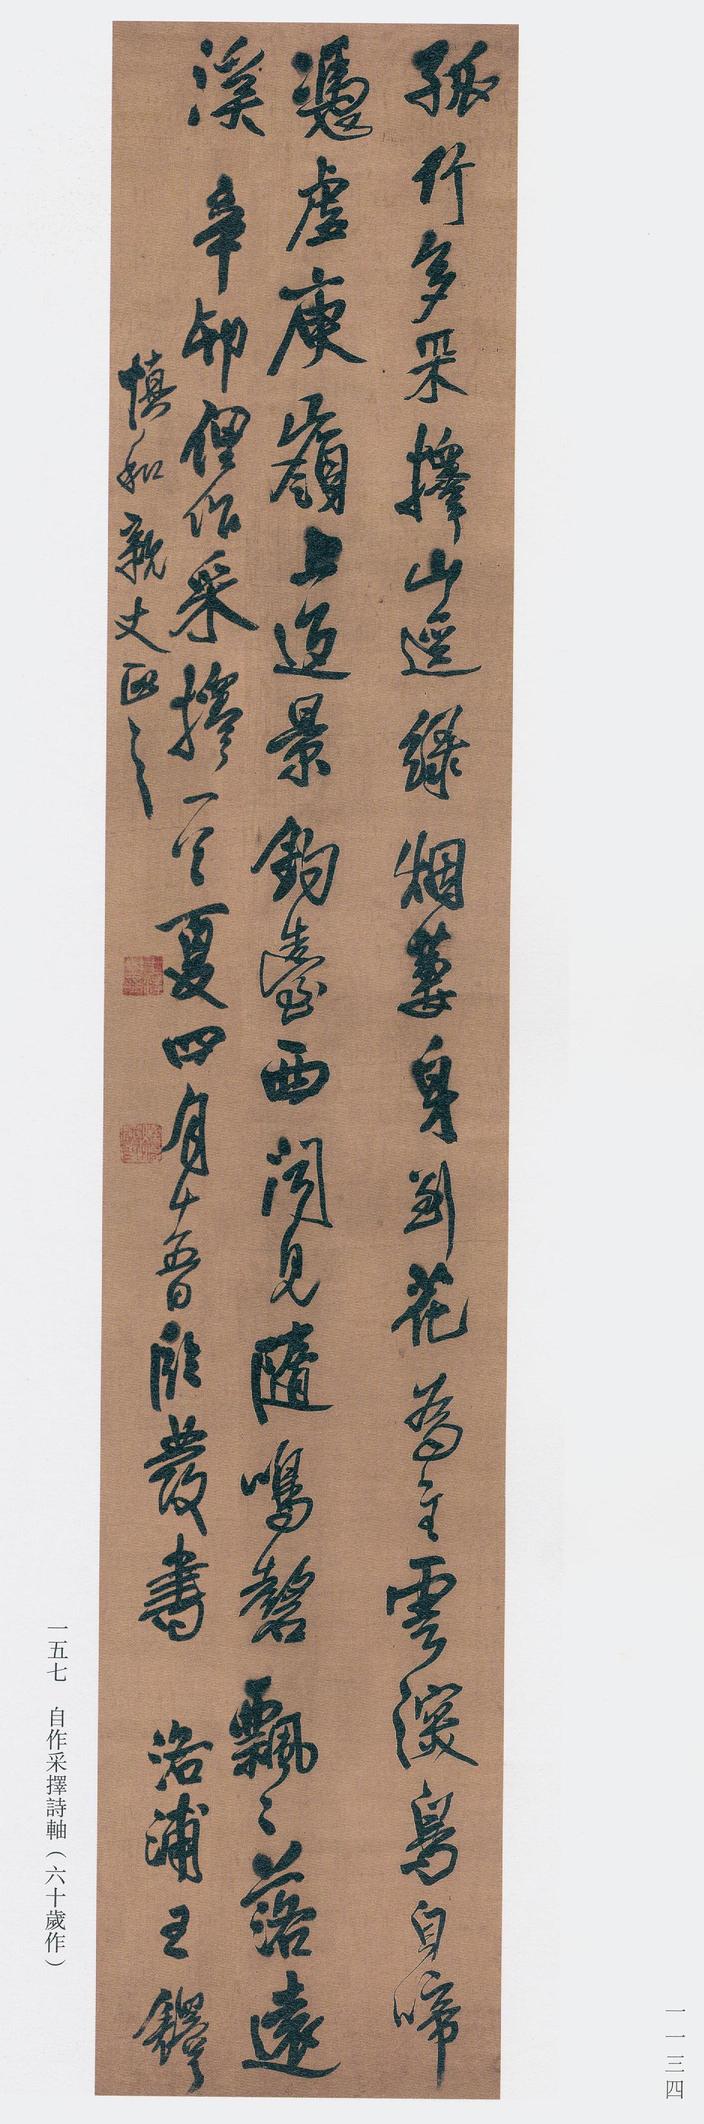 孤行多采擇山逕綠烟萋身到花為主雲深鳥自啼
憑虛庾嶺上返景鈞臺西聞見隨鳴磬飄〻落遠
溪 辛卯俚作采擇一首夏四月十五日臨發書 洛浦王鐸
慎和親丈正之
一五七 自作采擇詩軸（六十歲作）
一一三四